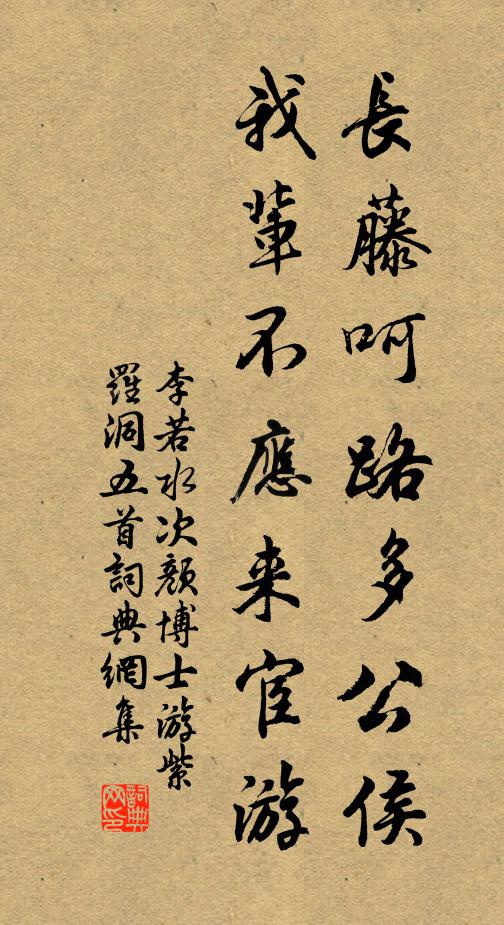 長藤呵路多公侯
我輩不應来宦游
李若水次顔博士游紫
羅洞五首詞典網集
詞典網印